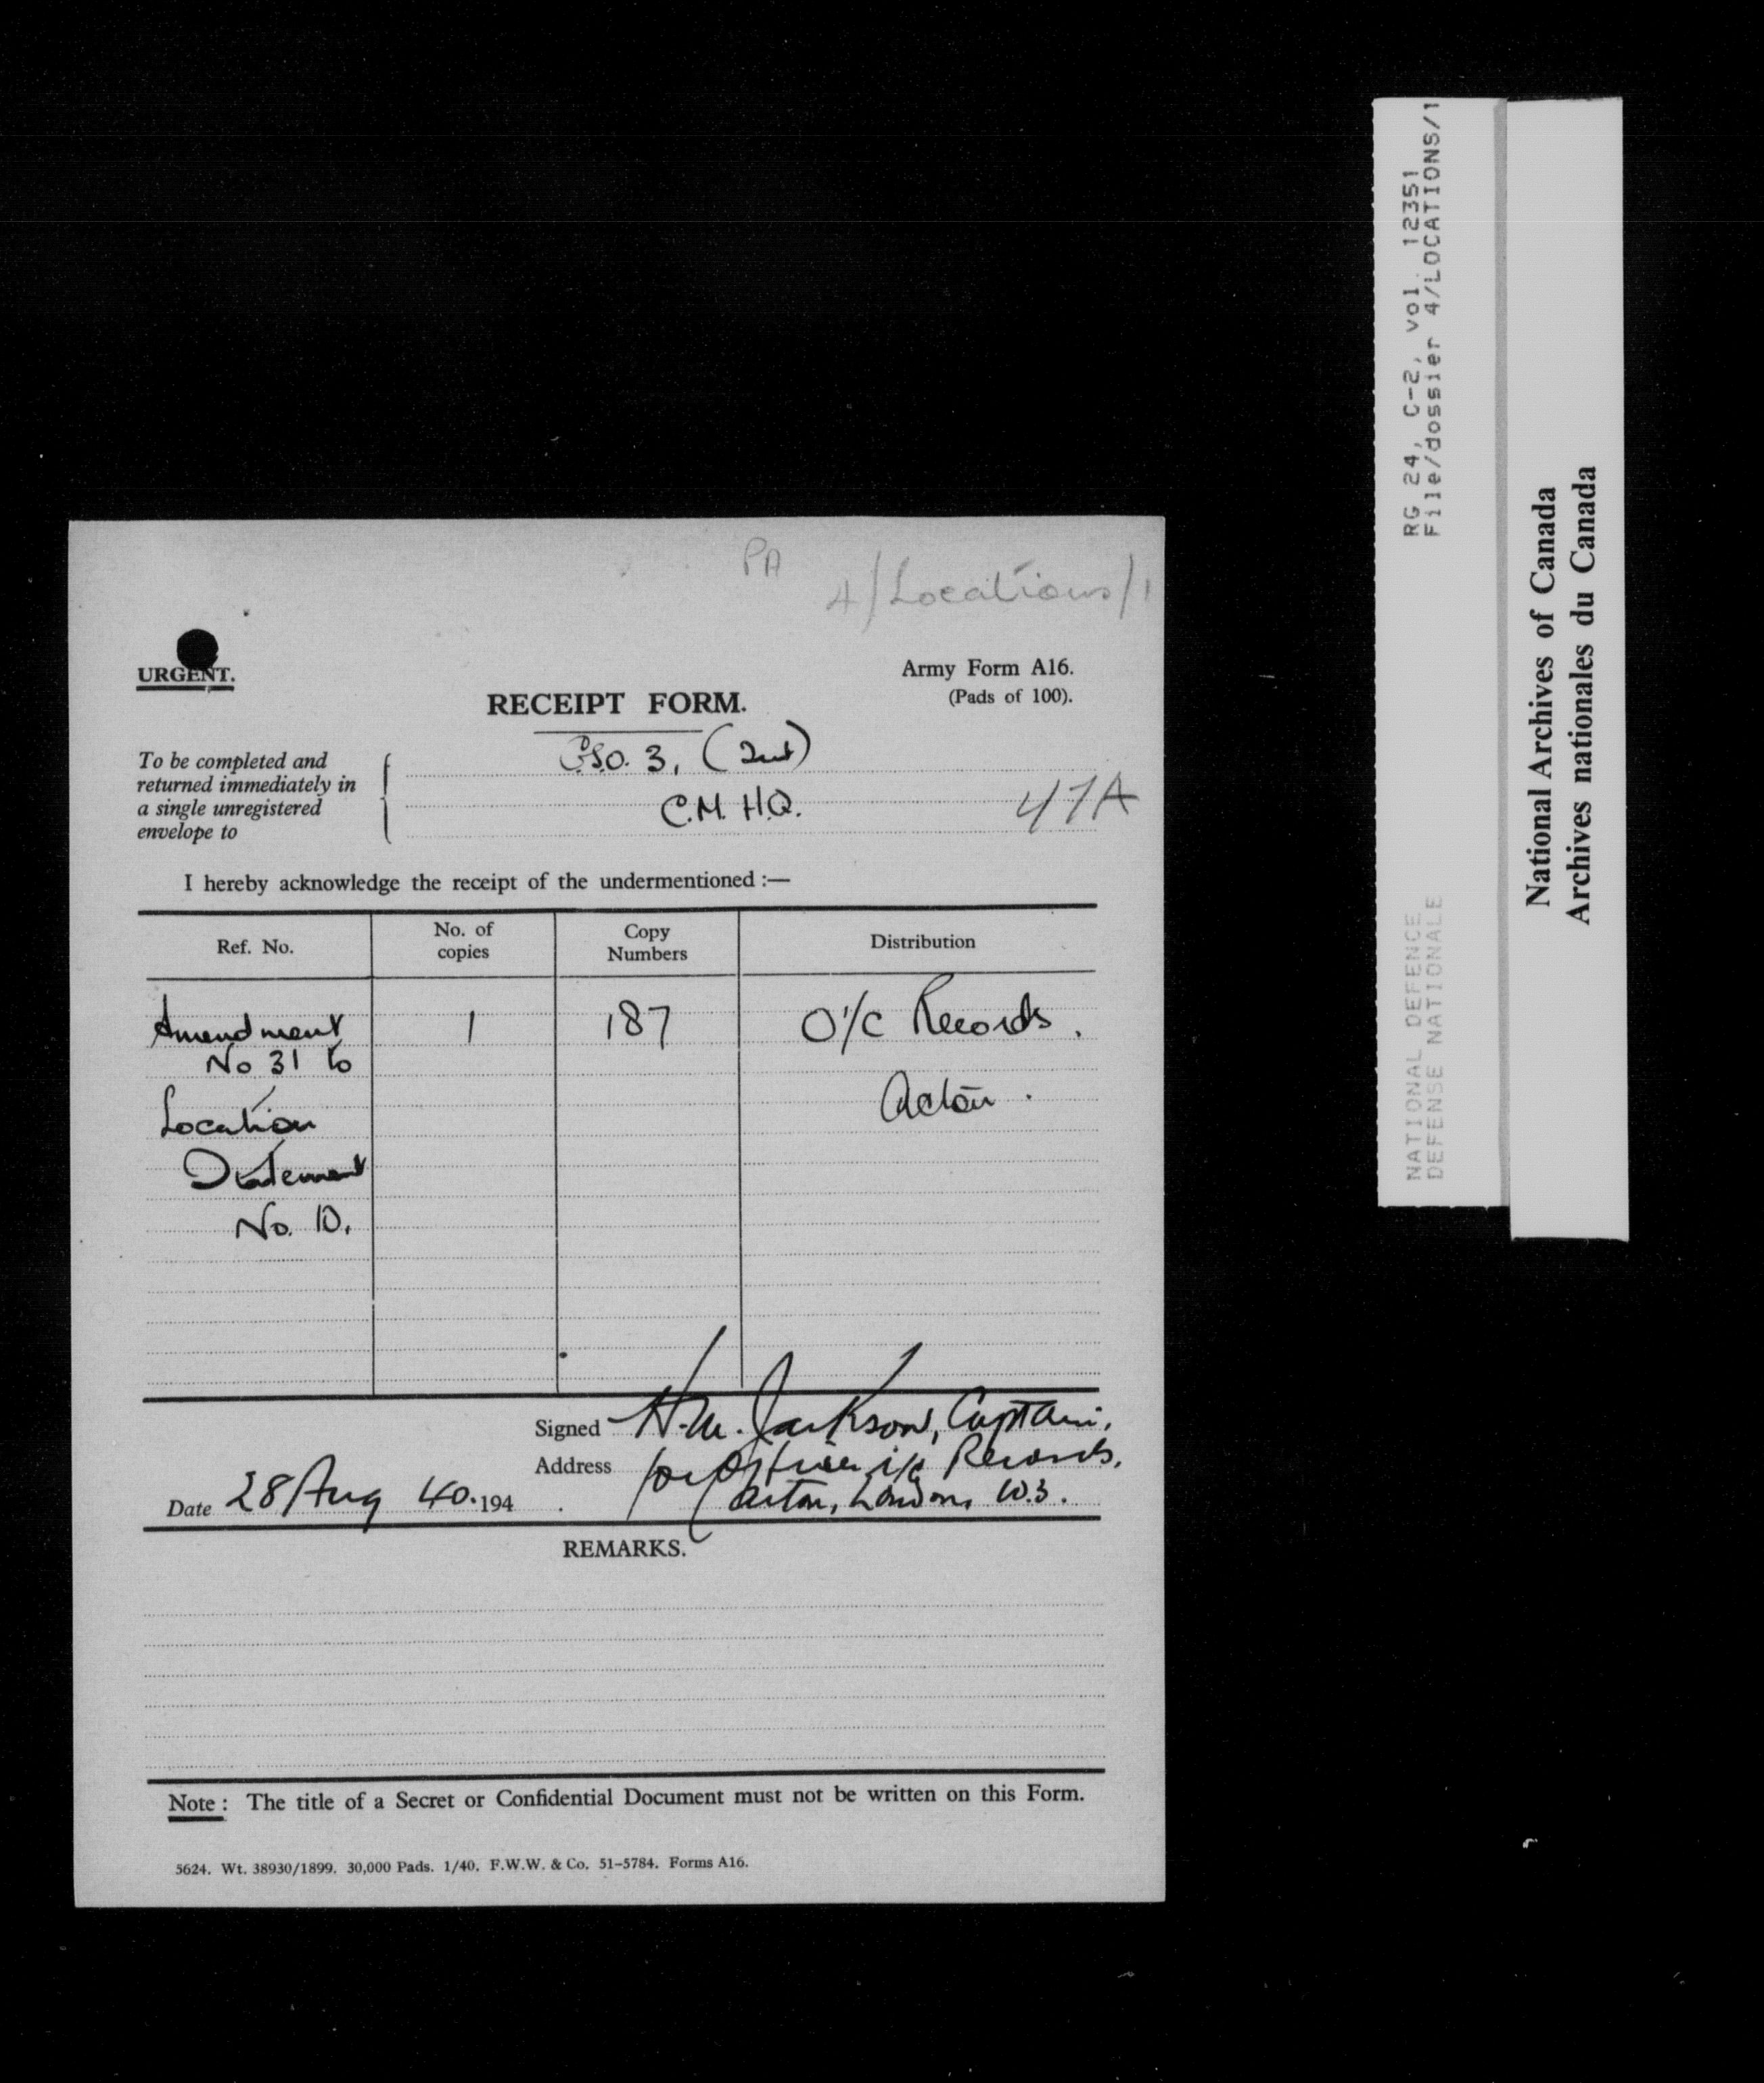 PA
4/Locations/1
URGENT.
Army Form A16.
(Pads of 100).
RECEIPT FORM.
To be completed and
returned immediately in
a single unregistered
envelope to
G.S.O. 3, (Int)
C.M.H.Q.
47A
I hereby acknowledge the receipt of the undermentioned :—
Ref. No.
No. of
copies
Copy
Numbers
Distribution
Amendment
No 31 to
Location
Statement
No. 10.
1
187
O i/c Records.
Acton.
Signed H.M. Jackson, Captain,
Address for Officer i/c Records,
Acton, London, W.3.
Date 28 Aug 40. 194 .
REMARKS.
Note : The title of a Secret or Confidential Document must not be written on this Form.
5624. Wt. 38930/1899. 30,000 Pads. 1/40. F.W.W. & Co. 51-5784. Forms A16.
RG 24, C-2, vol. 12351
File/dossier 4/LOCATIONS/1
NATIONAL DEFENCE
DEFENSE NATIONALE
National Archives of Canada
Archives nationales du Canada